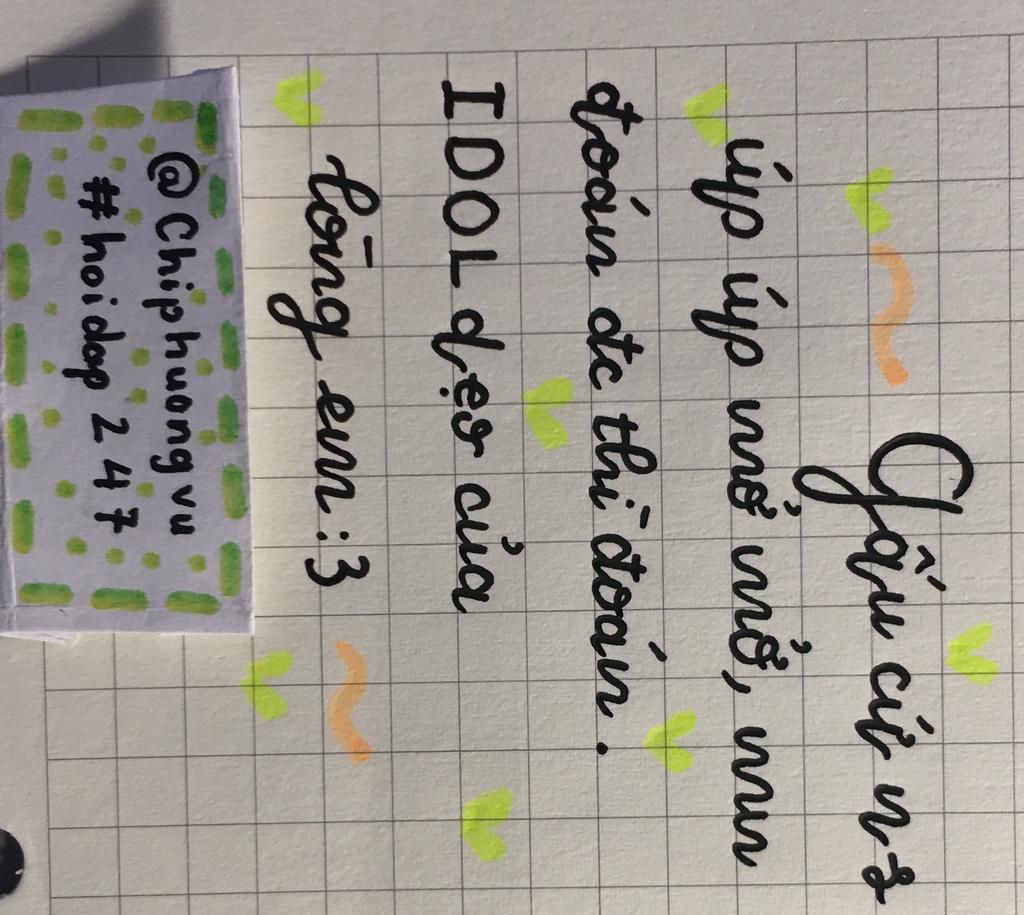 Gấu cứ nz
úp úp mở mở, mun
đoán đc thì đoán.
IDOL dẹo của
lòng em :3
@Chiphuongvu
#hoidap 247